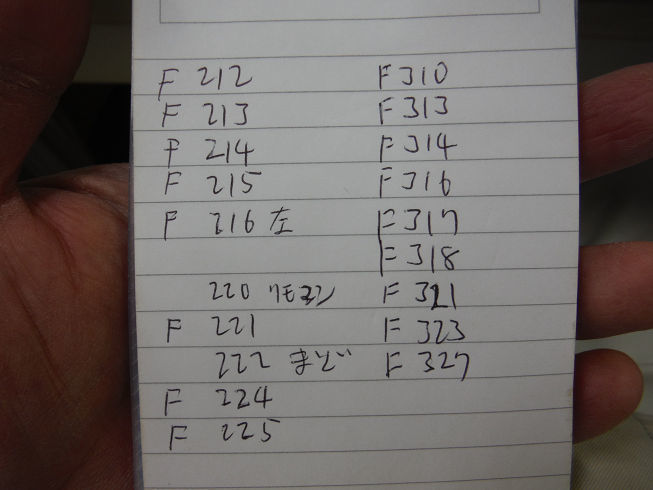 F 212 F 310
F 213 F 313
F 214 F 314
F 215 F 316
F 216 左 F 317
F 318
220 リモコン F 321
F 221 F 323
222 まど F 327
F 224
F 225